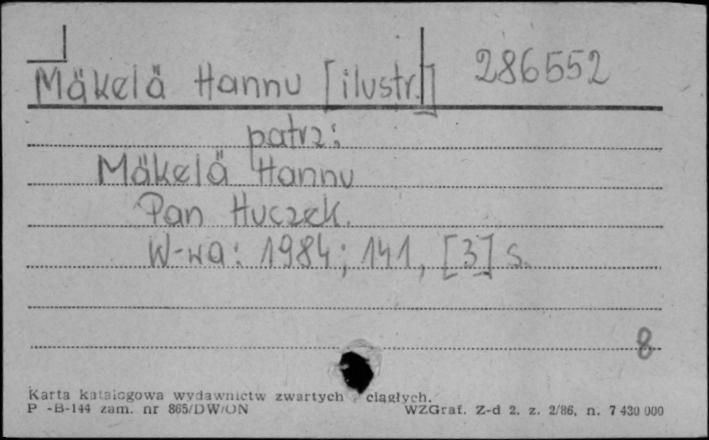 Mäkelä Hannu [ilustr.] 286552
patrz:
Mäkelä Hannu
Pan Huczek.
W-wa: 1984; 141, [3] s.
8
Karta katalogowa wydawnictw zwartych i ciągłych.
P-B-144 zam. nr 865/DW/ON WZGraf. Z-d 2. z. 2/86, n. 7 430 000